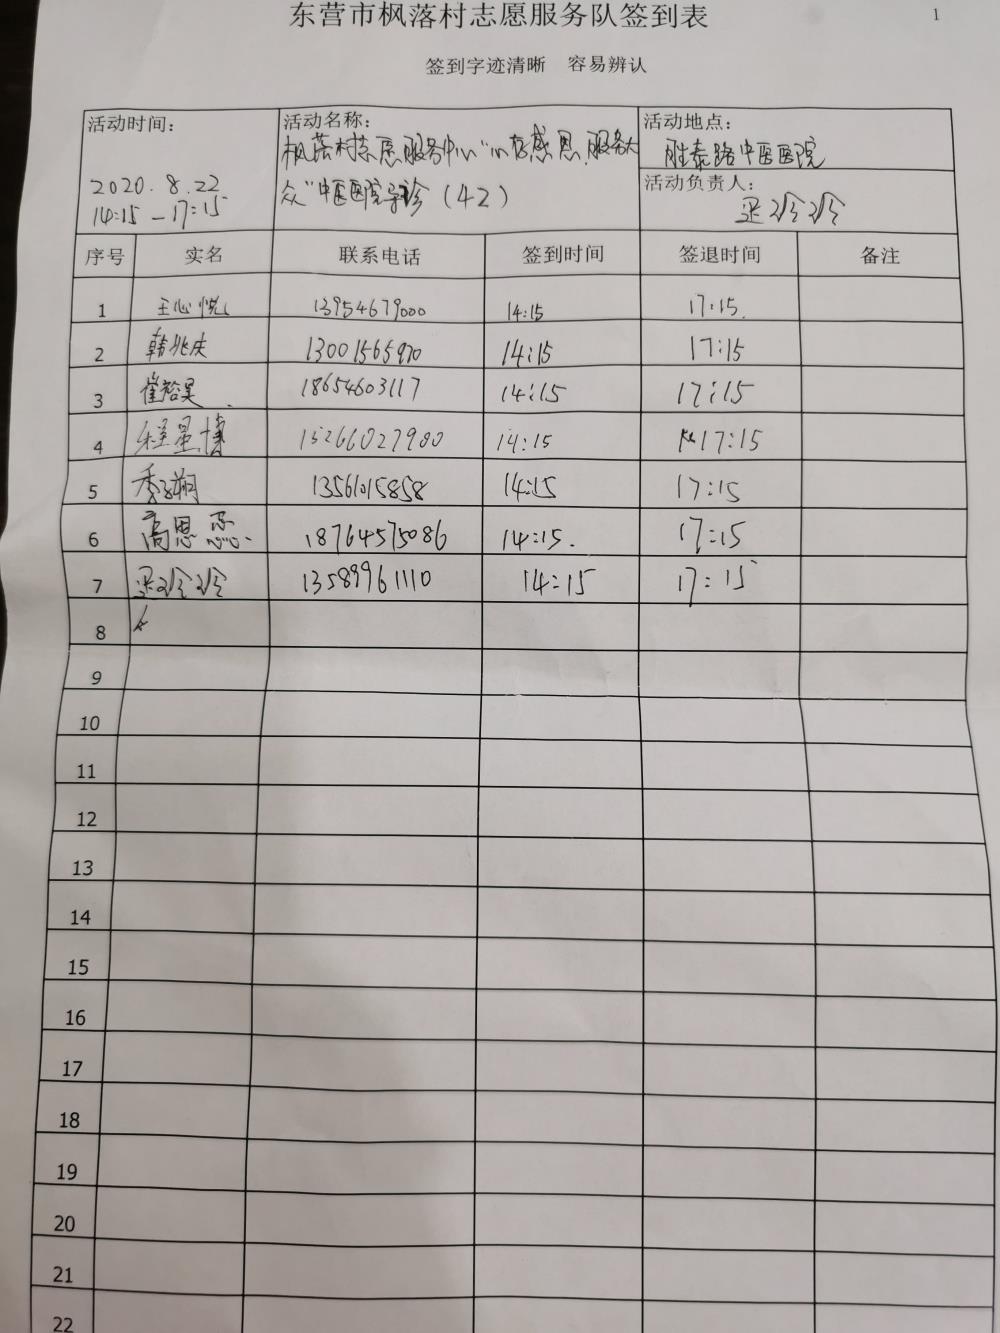 东营市枫落村志愿服务队签到表
1
签到字迹清晰 容易辨认
活动时间:
2020.8.22
14:15-17:15
活动名称:
枫落村志愿服务中心"心存感恩.服务大
众"中医医院导诊(42)
活动地点:
胜泰路中医医院
活动负责人:
玲玲
序号 实名 联系电话 签到时间 签退时间 备注
1 王心悦 13954679000 14:15 17:15.
2 韩兆庆 13001565970 14:15 17:15
3 崔裕昊 18654603117 14:15 17:15
4 程星博 15266027980 14:15 17:15
5 季翔 13561015858 14:15 17:15
6 高恩 18764575086 14:15. 17:15
7 玲玲 13589961110 14:15 17:15
8
9
10
11
12
13
14
15
16
17
18
19
20
21
22